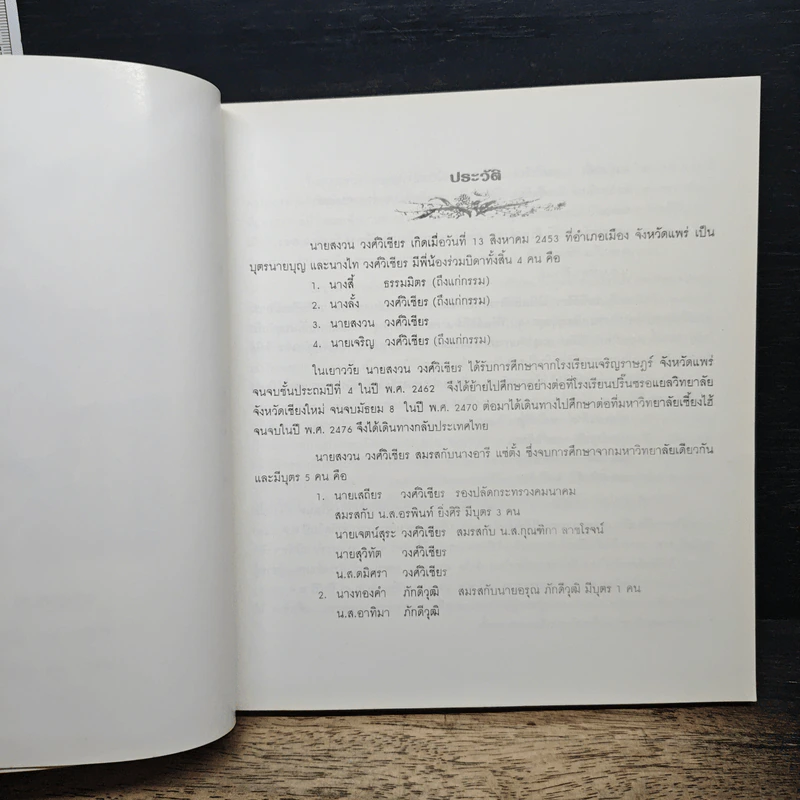 ประวัติ
นายสงวน วงศ์วิเชียร เกิดเมื่อวันที่ 13 สิงหาคม 2453 ที่อำเภอเมือง จังหวัดแพร่ เป็น
บุตรนายบุญ และนางไท วงศ์วิเชียร มีพี่น้องร่วมบิดาทั้งสิ้น 4 คน คือ
1. นางสี้ ธรรมมิตร (ถึงแก่กรรม)
2. นางลั้ง วงศ์วิเชียร (ถึงแก่กรรม)
3. นายสงวน วงศ์วิเชียร
4. นายเจริญ วงศ์วิเชียร (ถึงแก่กรรม)
ในเยาววัย นายสงวน วงศ์วิเชียร ได้รับการศึกษาจากโรงเรียนเจริญราษฎร์ จังหวัดแพร่
จนจบชั้นประถมปีที่ 4 ในปี พ.ศ. 2462 จึงได้ย้ายไปศึกษาอย่างต่อที่โรงเรียนปริ๊นซรอแยลวิทยาลัย
จังหวัดเชียงใหม่ จนจบมัธยม 8 ในปี พ.ศ. 2470 ต่อมาได้เดินทางไปศึกษาต่อที่มหาวิทยาลัยเซี้ยงไฮ้
จนจบในปี พ.ศ. 2476 จึงได้เดินทางกลับประเทศไทย
นายสงวน วงศ์วิเชียร สมรสกับนางอารี แซ่ตั้ง ซึ่งจบการศึกษาจากมหาวิทยาลัยเดียวกัน
และมีบุตร 5 คน คือ
1. นายเสถียร วงศ์วิเชียร รองปลัดกระทรวงคมนาคม
สมรสกับ น.ส.อรพินท์ ยิ่งศิริ มีบุตร 3 คน
นายเจตน์สุระ วงศ์วิเชียร สมรสกับ น.ส.กุณฑิกา
นายสุวิทัต วงศ์วิเชียร
น.ส.ตมิศรา วงศ์วิเชียร
2. นางทองคำ ภักดีวุฒิ สมรสกับนายอรุณ ภักดีวุฒิ มีบุตร 1 คน
น.ส.อาทิมา ภักดีวุฒิ